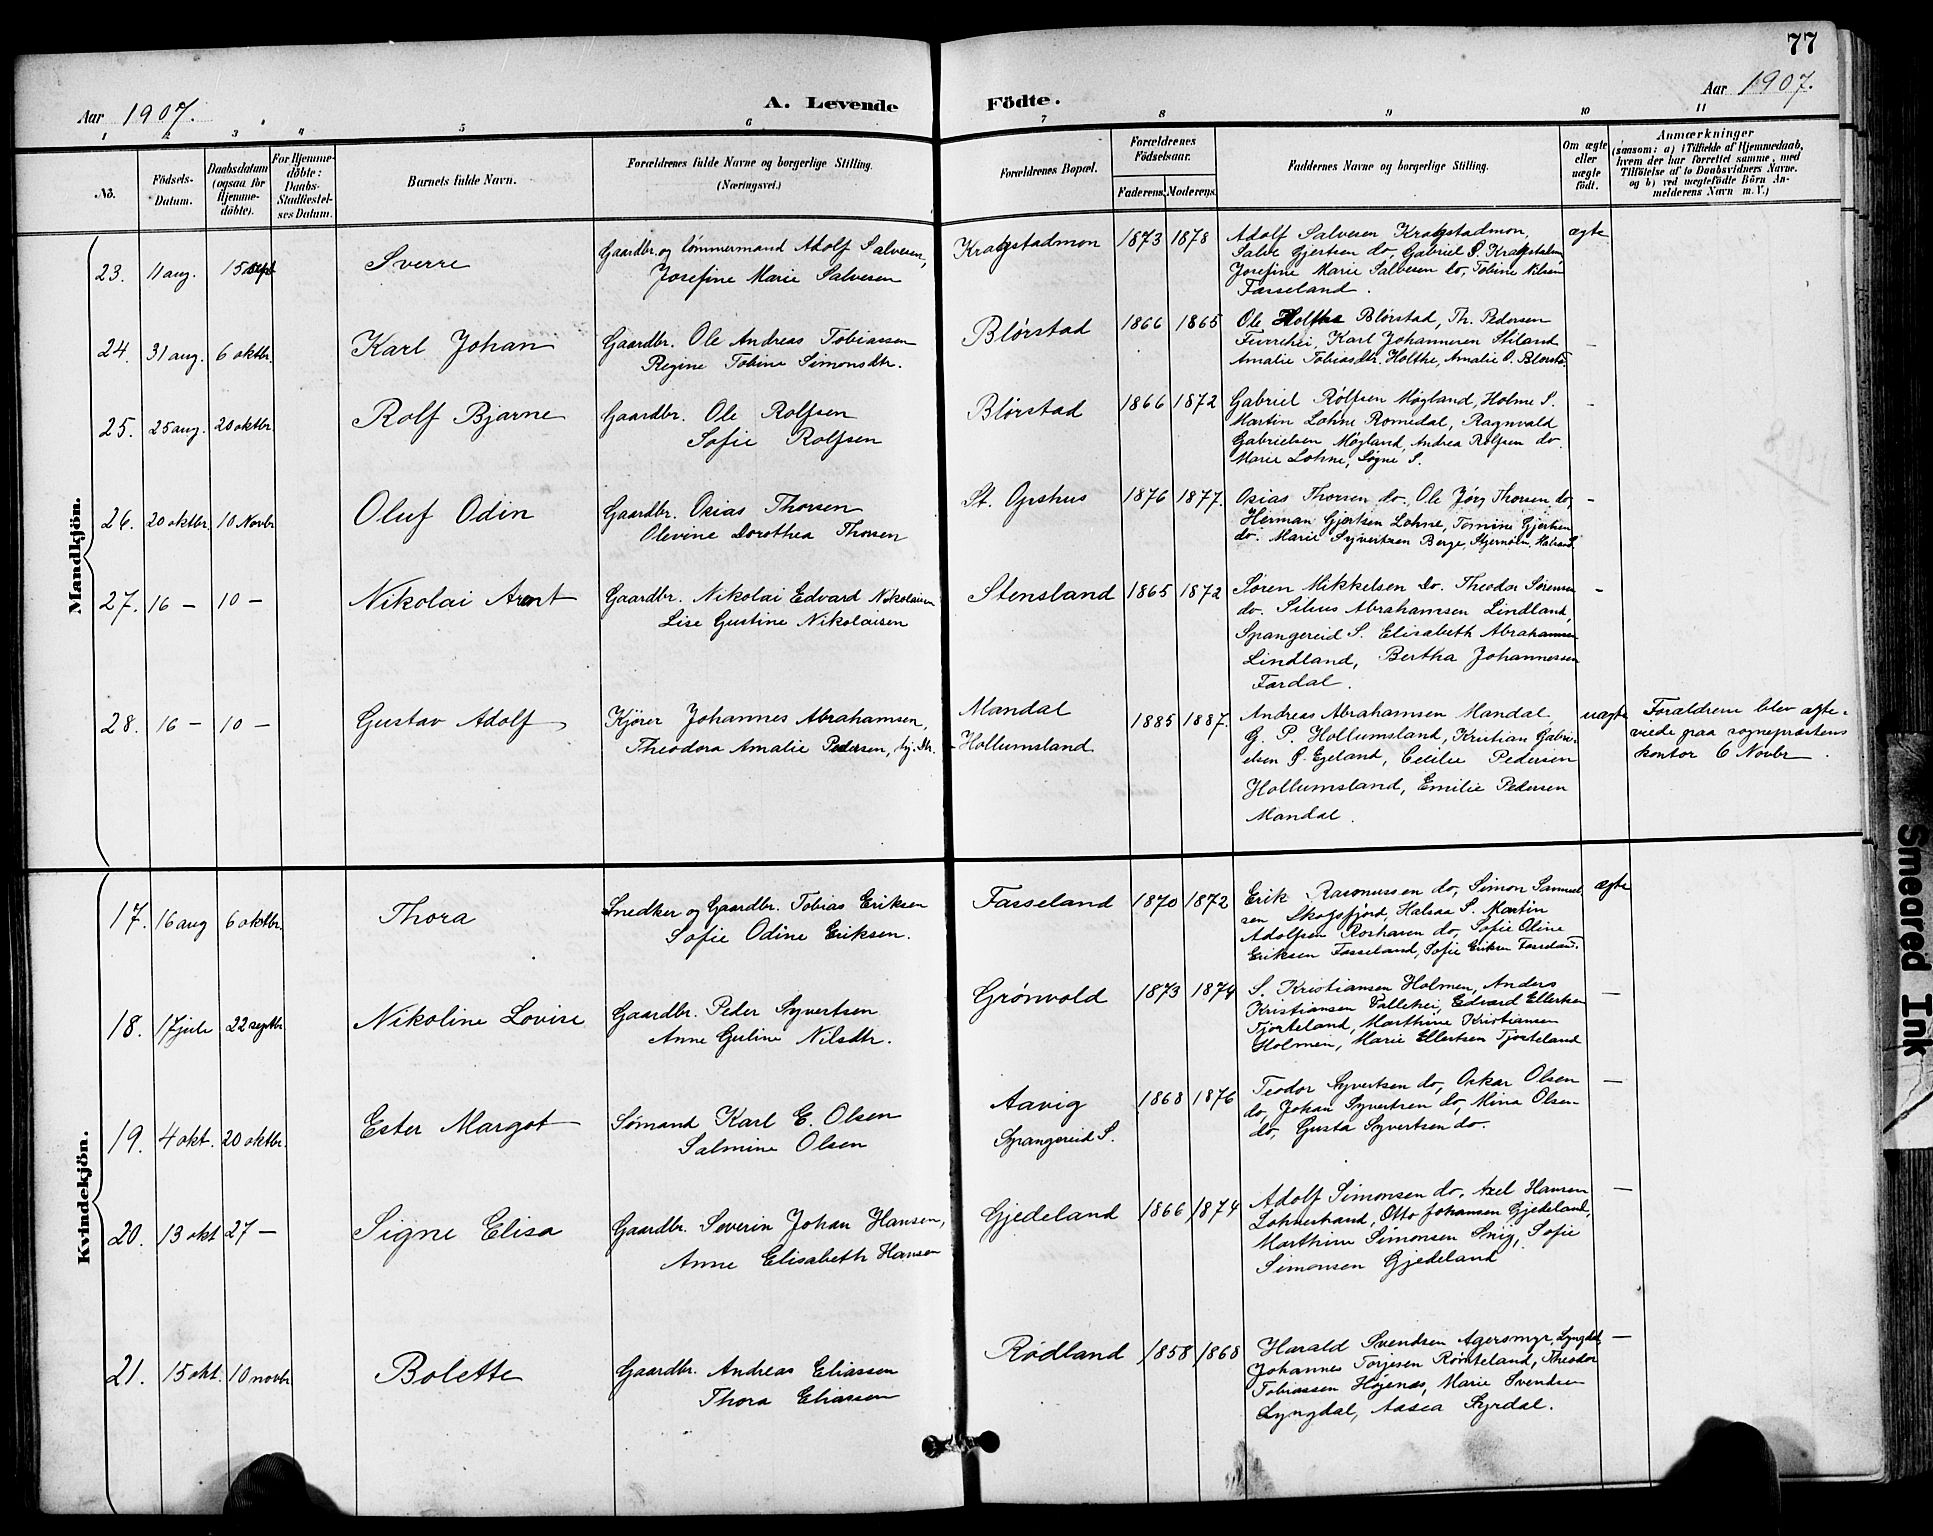 77
Aar 1907.
A. Levende Födte.
Aar 1907.
1 2 3 4 5 6 7 8 9 10 11
No.
Födsels-Datum.
Daabsdatum (ogsaa for Hjemme-döbte).
For Hjemme-döbte: Daabs-Stadfæstel-ses Datum.
Barnets fulde Navn.
Forældrenes fulde Navne og borgerlige Stilling.
(Næringsvei.)
Forældrenes Bopæl.
Forældrenes Födselsaar.
Faderens. Moderens.
Faddernes Navne og borgerlige Stilling.
Om ægte eller uægte födt.
Anmærkninger
(saasom: a) i Tilfælde af Hjemmedaab,
hvem der har forrettet samme, med
Tilföielse af to Daabsvidners Navne.
og b) ved uægtefödte Börn An-
melderens Navn m. V.)
Mandkjön.
23. 11 aug. 15 sept. Sverre
Gaardbr. og tømmermand Adolf Salvesen,
Josefine Marie Salvesen
Kragstadmon 1873 1878
Adolf Salvesen Kragstadmon,
Salve Gjertsen do, Gabriel S. Kragstadm
Josefine Marie Salvesen do, Tobine Nilsen
Fasseland.
ægte
24. 31 aug. 6 oktbr. Karl Johan
Gaardbr. Ole Andreas Tobiassen
Regine Tobine Simonsdtr.
Blørstad 1866 1865
Ole Holthe Blørstad, Th. Pedersen
Karl Johannesen Stiland
Amalie Tobiasdtr. Holthe, Amalie O. Blørstad.
-
25. 25 aug. 20 oktbr Rolf Bjarne
Gaardbr. Ole Rolfsen
Sofie Rolfsen
Blørstad 1866 1872
Gabriel Rolfsen Møgland, Holme S.
Martin Lohne Romedal, Ragnvald
Gabrielsen Møgland, Andrea Rolfsen do.
Marie Lohne, Søgne S.
-
26. 20 oktbr. 10 Novbr Oluf Odin
Gaardbr. Osias Thorsen
Olevine Dorothea Thorsen
St. Opshus 1876 1877.
Osias Thorsen do, Ole Jørg Thorsen do,
Herman Gjertsen Lohne, Tomine Gjertsen
do. Marie Syvertsen Berge, Halsaa S.
-
27. 16 - 10 - Nikolai Arent
Gaardbr. Nikolai Edvard Nikolaisen
Lise Gustine Nikolaisen
Stensland 1865 1872
Søren Mikkelsen do. Theodor Sørensen
do. Silius Abrahamsen Lindland,
Spangereid S. Elisabeth Abrahamsen
Lindland, Bertha Johannessen
Fardal.
-
28. 16 - 10 - Gustav Adolf
Kjører Johannes Abrahamsen,
Theodora Amalie Pedersen, tj. Dtr.
Mandal
- Hollumsland
1885 1887.
Andreas Abrahamsen Mandal,
G. P. Hollumsland, Kristian Gabri-
elsen S. Egeland, Cecilie Pedersen
Hollumsland, Emilie Pedersen
Mandal.
uægte
Forældrene blev ægte-
viede paa sogneprestens
kontor 6 Novbr.
Kvindekjön.
17. 16 aug 6 oktbr. Thora
Snedker og Gaardbr. Tobias Eriksen
Sofie Odine Eriksen.
Fasseland 1870 1872
Erik Rasmussen do, Simon Samuel
sen Skogsfjord, Halsaa S. Martin
Adolfsen Roshaven do, Sofie Oline
Eriksen Fasseland, Sofie Eriksen Fasseland.
ægte
18. 17 jule 22 septbr Nikoline Lovise
Gaardbr. Peder Syvertsen
Anne Guline Nilsdtr.
Grønvold 1873 1874
S. Kristiansen Holmen, Anders
Kristiansen Vallehei, Edvard Ellertsen
Tjorteland, Marthine Kristiansen
Holmen, Marie Ellertsen Tjorteland
-
19. 4 okt. 20 oktbr. Ester Margot
Sømand Karl E. Olsen
Salmine Olsen
Aavig
Spangereid S.
1868 1876
Teodor Syvertsen do, Oskar Olsen
do, Johan Syvertsen do, Mina Olsen
do, Gusta Syvertsen do.
-
20. 13 okt 27 - Signe Elisa
Gaardbr. Severin Johan Hansen,
Anne Elisabeth Hansen
Gjedeland 1866 1874
Adolf Simonsen do, Axel Hansen
Lohnestrand, Otto Johansen Gjedeland,
Marthine Simonsen Snig, Sofie
Simonsen Gjedeland
-
21. 15 okt. 10 novbr Bolette
Gaardbr. Andreas Eliassen
Thora Eliassen
Rødland 1858 1868
Harald Svendsen Agersmyr, Lyngdal,
Johannes Torjesen Rømteland, Theodor
Tobiassen Højenæs, Marie Svendsen
Lyngdal, Aasea Syrdal.
-
Smeared Ink